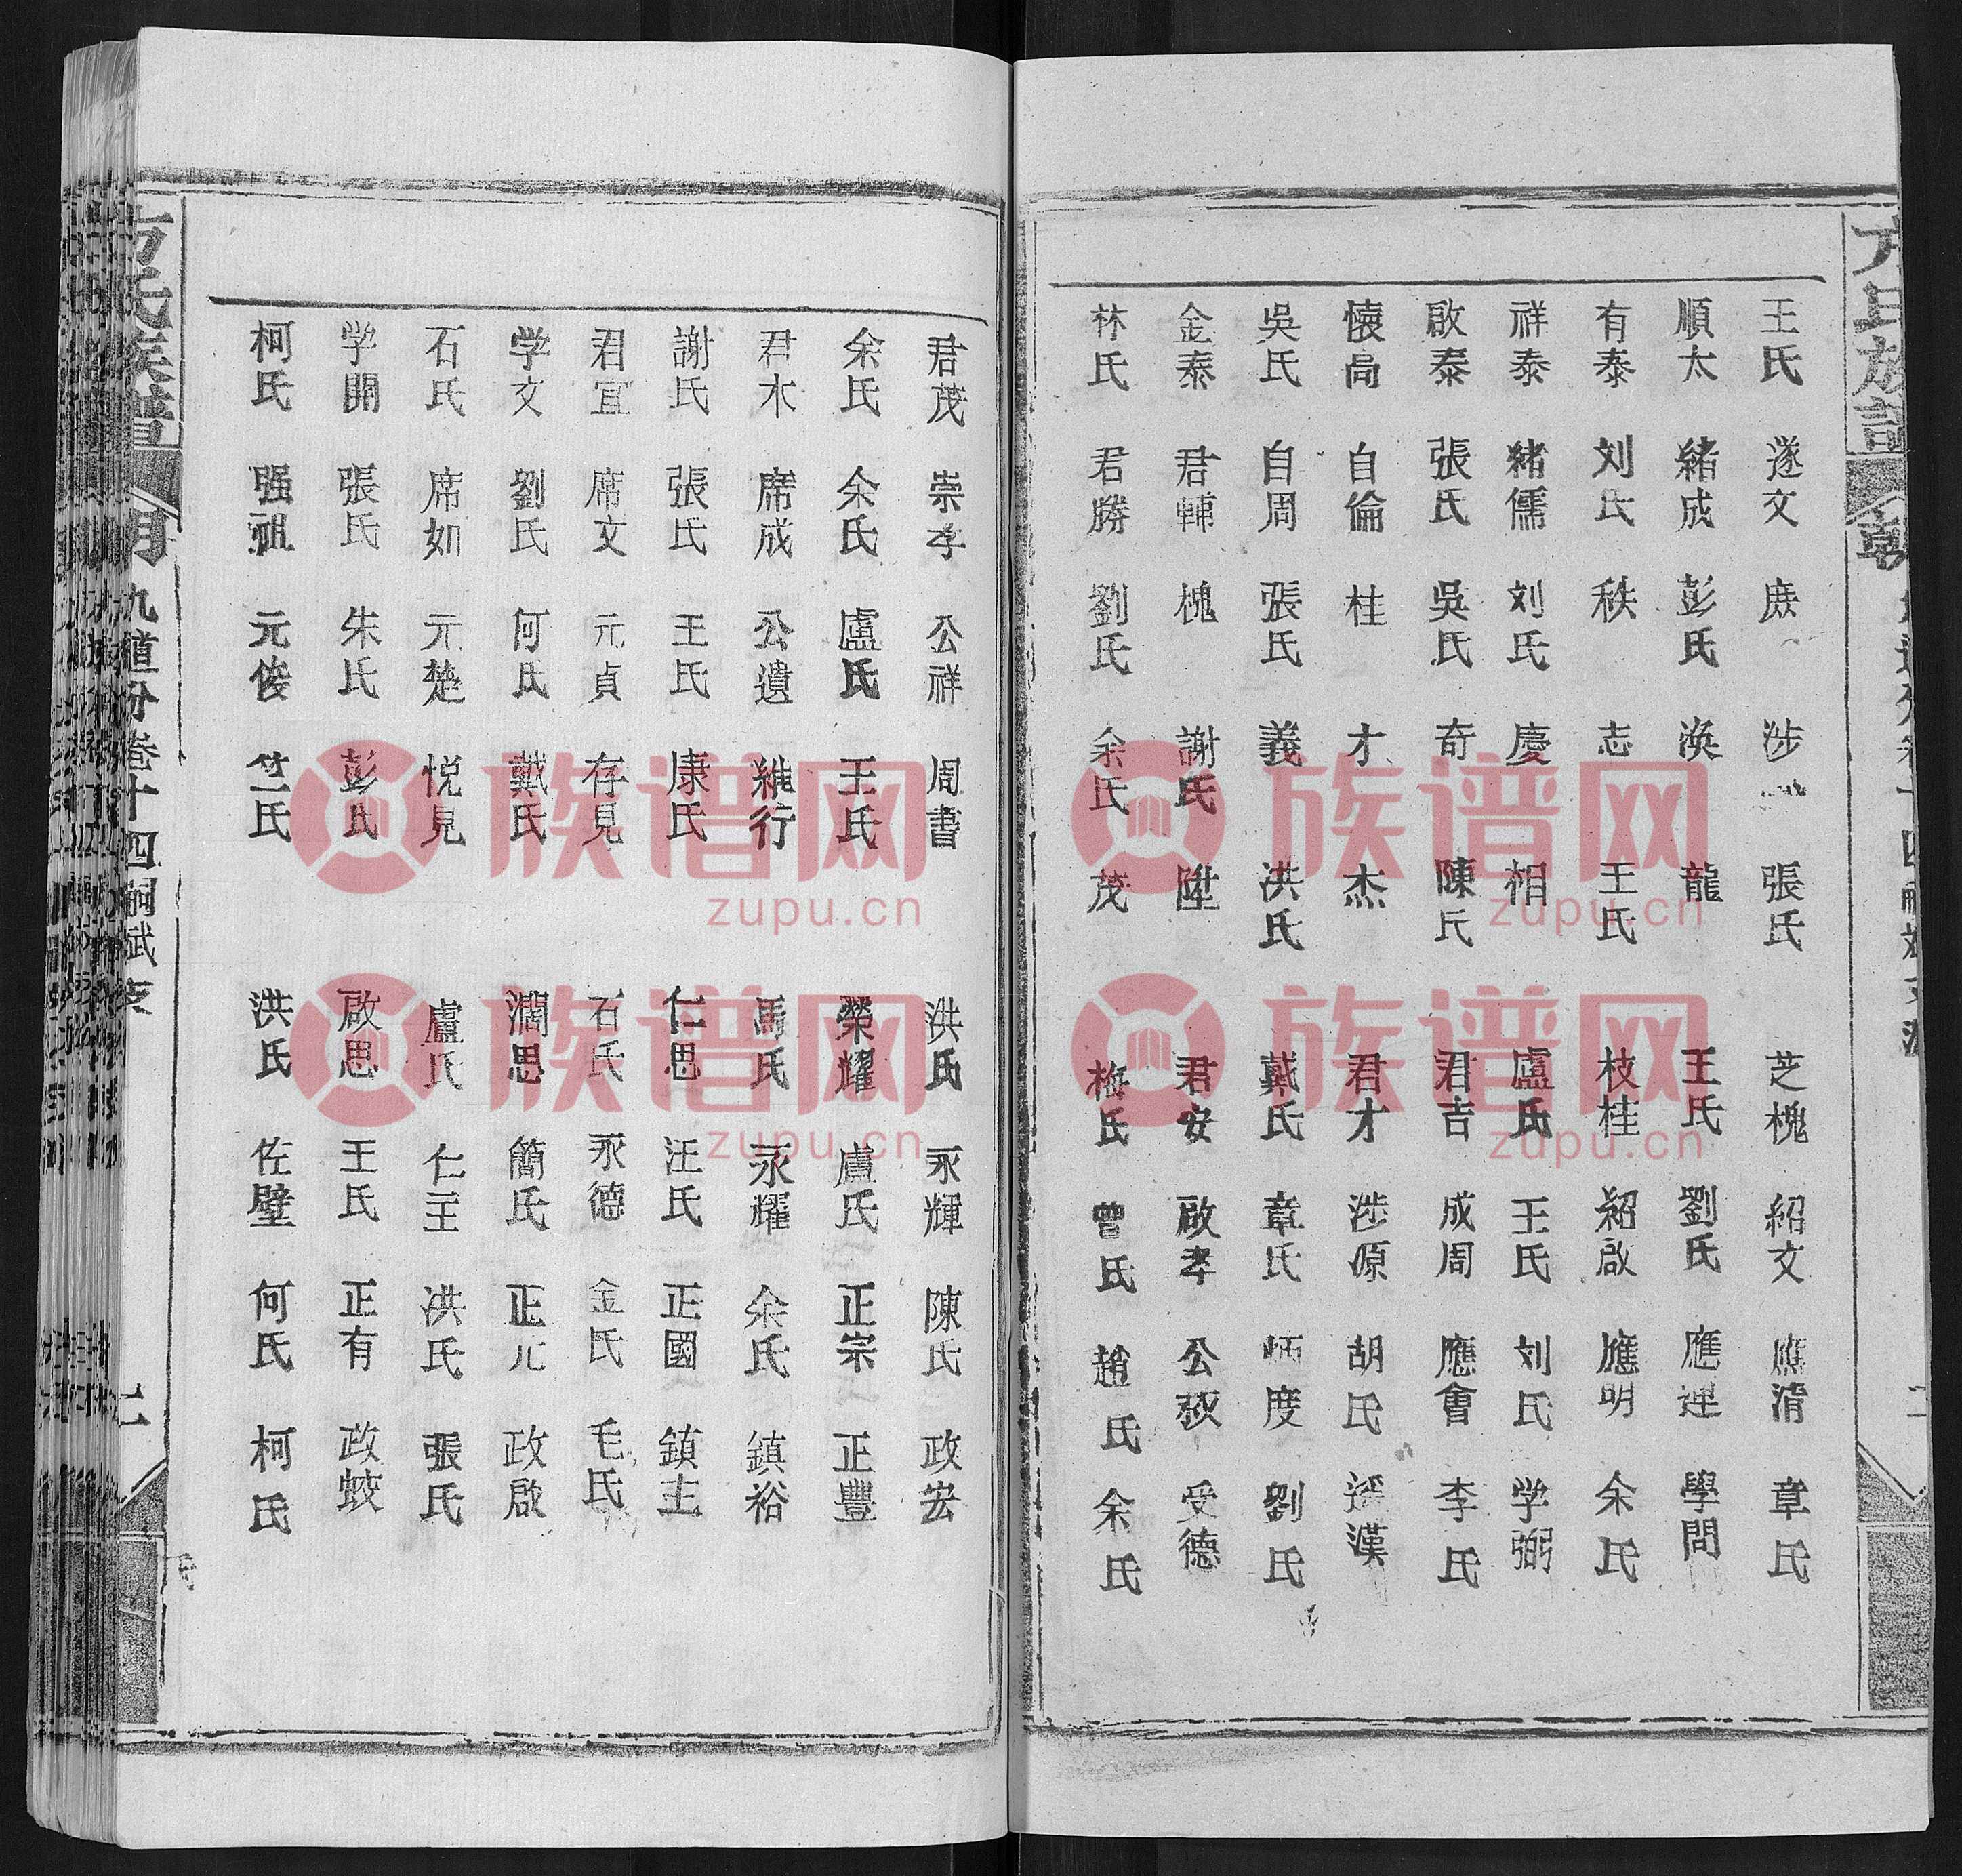 王氏 遂文 庶 涉 張氏 芝槐 紹文 應清 章氏
順太 緒成 彭氏 渙 龍 王氏 劉氏 應運 學問
有泰 刘氏 秩 志 王氏 枝桂 紹啟 應明 余氏
祥泰 緒儒 刘氏 慶 相 盧氏 王氏 刘氏 学弼
啟泰 張氏 吳氏 奇 陳氏 君吉 成周 應會 李氏
懷高 自倫 桂 才 杰 君才 涉源 胡氏 漢
吳氏 自周 張氏 義 洪氏 戴氏 章氏 炳度 劉氏
金泰 君輔 槐 謝氏 陞 君安 啟孝 公狄 受德
林氏 君勝 劉氏 余氏 茂 梅氏 曾氏 趙氏 余氏
君茂 崇孝 公祥 周書 洪氏 永輝 陳氏 政宏
余氏 余氏 盧氏 王氏 榮耀 盧氏 正宗 正豐
君木 席成 公遺 維行 馬氏 永耀 余氏 鎮裕
謝氏 張氏 王氏 康氏 仁思 汪氏 正國 鎮主
君宜 席文 元貞 存見 石氏 永德 金氏 毛氏
学文 劉氏 何氏 戴氏 潤思 簡氏 正元 政啟
石氏 席如 元楚 悦見 盧氏 仁王 洪氏 張氏
学開 張氏 朱氏 彭氏 啟思 王氏 正有 政蛟
柯氏 强祖 元俊 竺氏 洪氏 佐璧 何氏 柯氏
方氏族譜 九道份卷十四嗣斌支
族谱网
zupu.cn
族谱网
zupu.cn
族谱网
zupu.cn
族谱网
zupu.cn